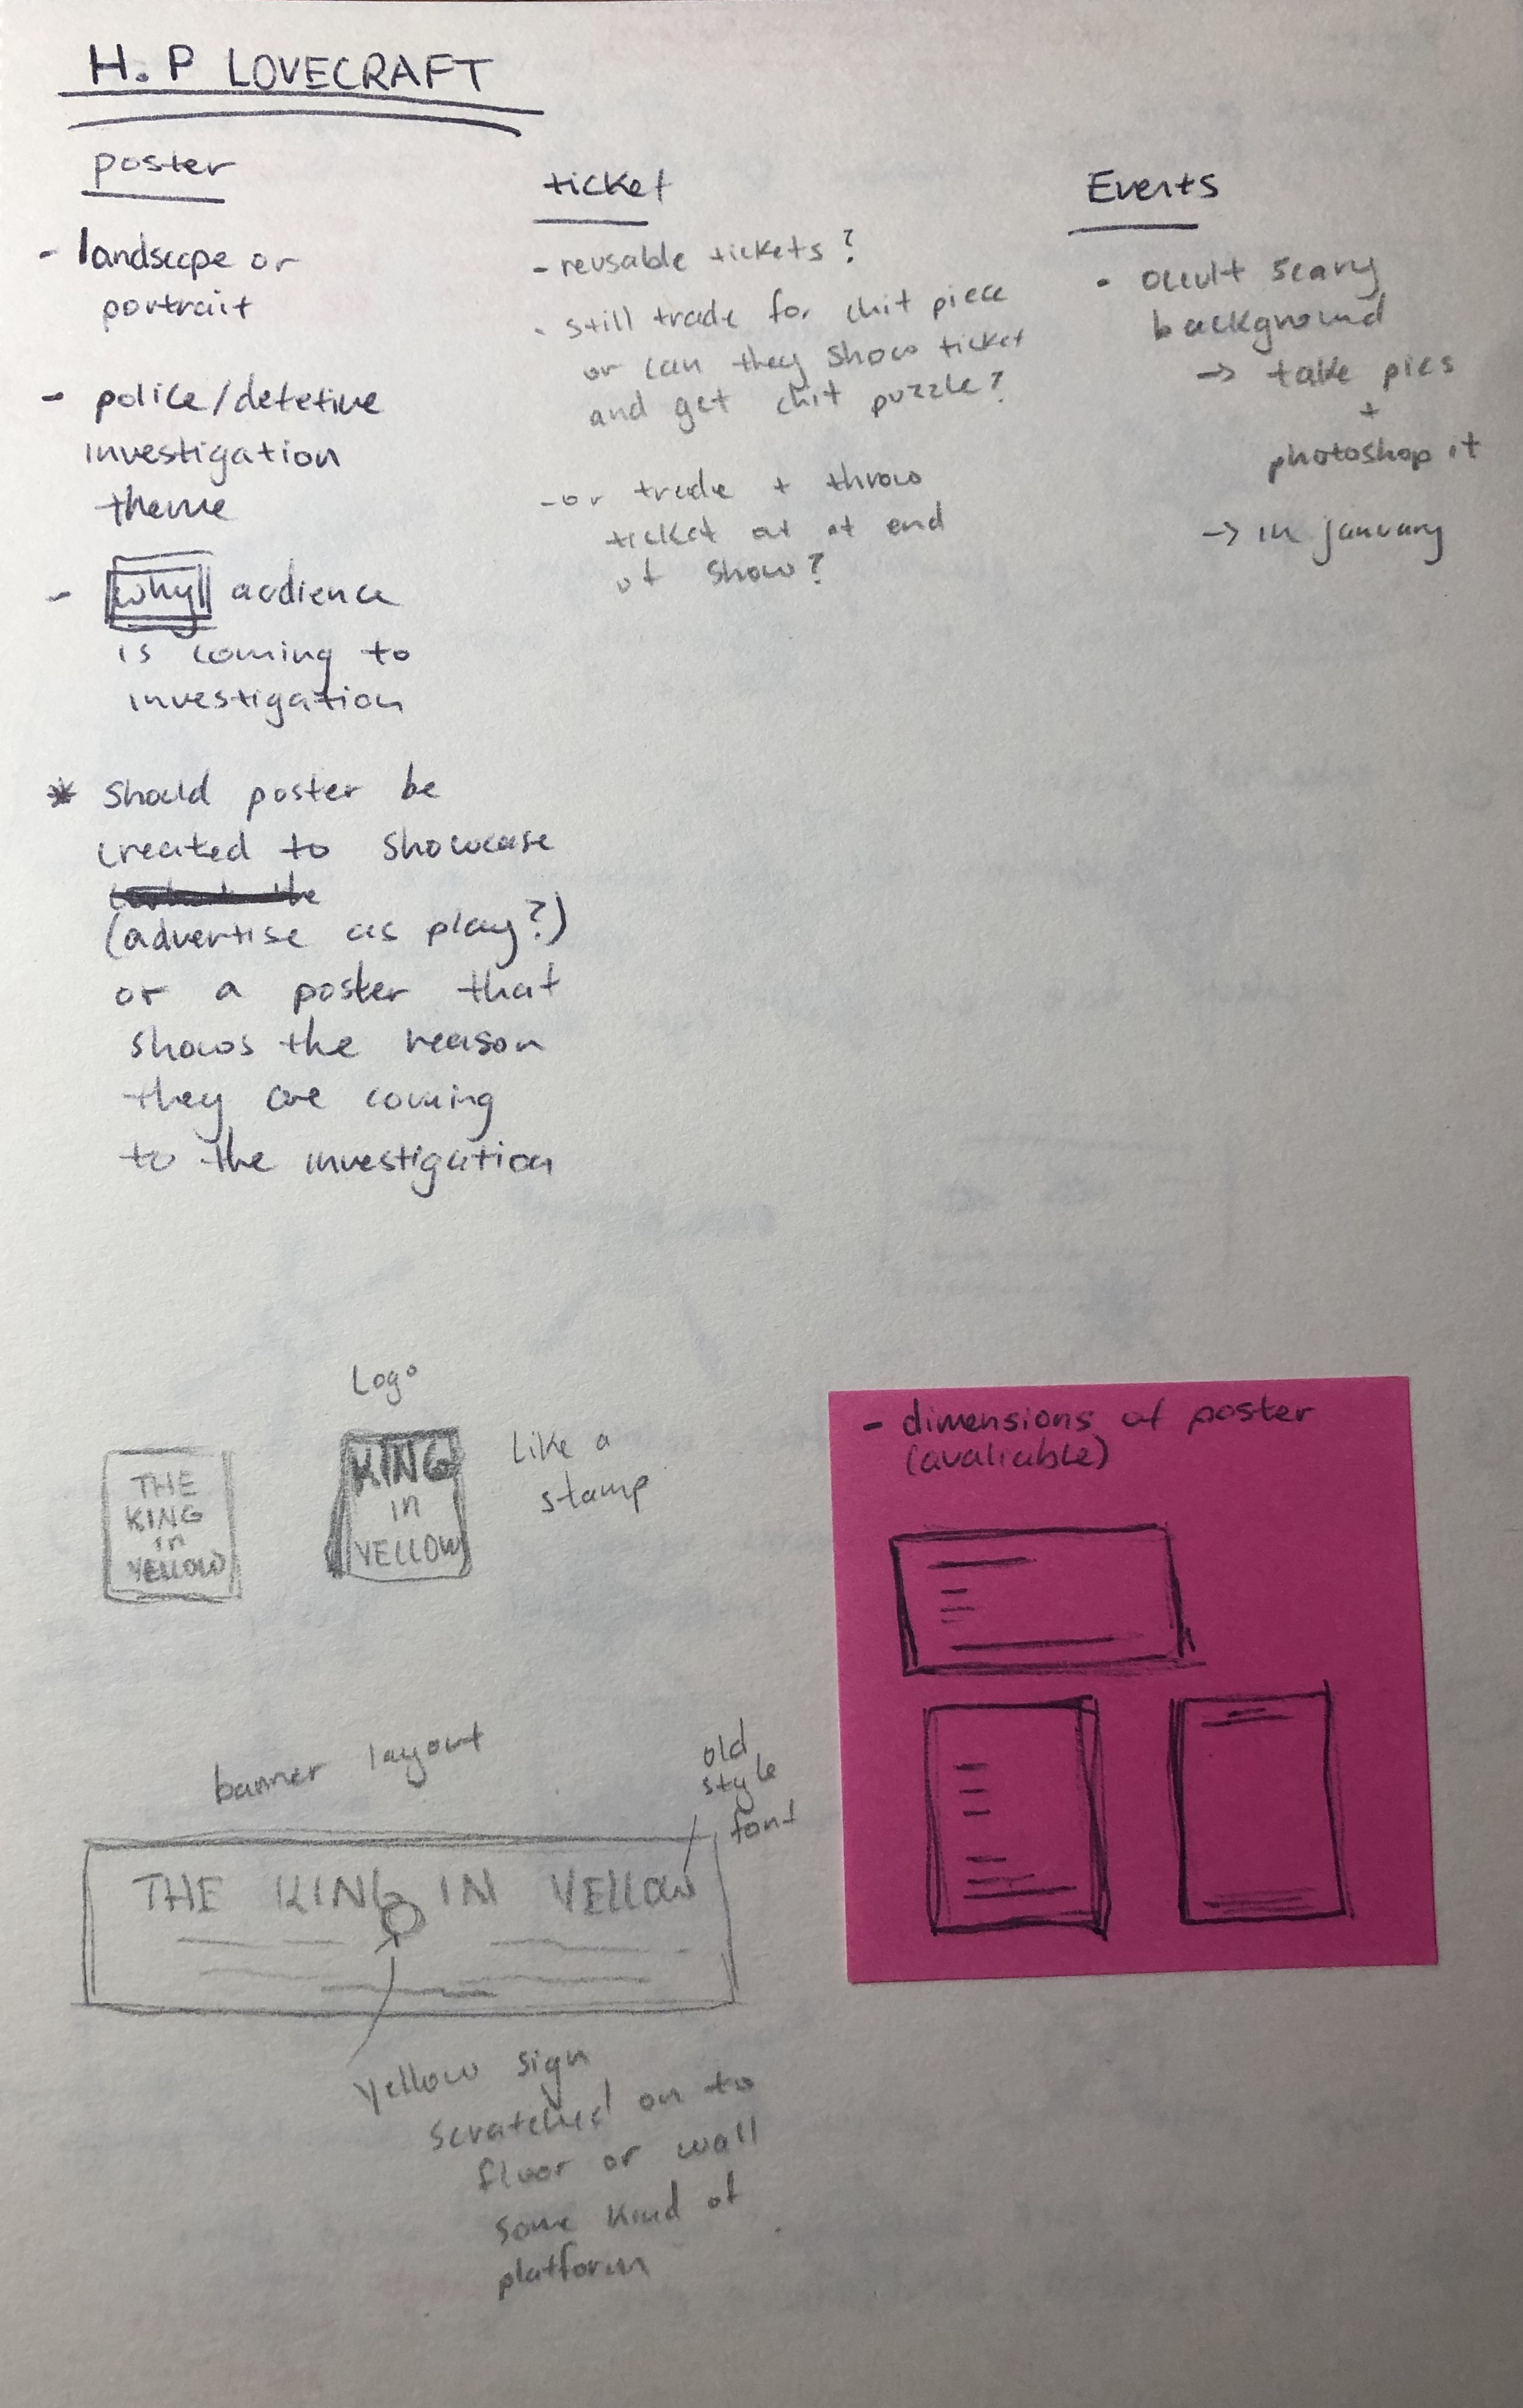 H.P LOVECRAFT
poster
- landscape or
portrait
- police/detetive
investigation
theme
- why audience
is coming to
investigation
* Should poster be
created to showcase
(advertise as play?)
or a poster that
shows the reason
they are coming
to the investigation
ticket
- reusable tickets?
- still trade for chit piece
or can they show ticket
and get chit puzzle?
- or trade + throw
ticket out at end
of show?
Events
- occult scary
background
→ take pics
+
photoshop it
→ in january
Logo
THE
KING
in
YELLOW
KING
in
YELLOW
Like a
stamp
- dimensions of poster
(avaliable)
banner layout
old
style
font
THE KING IN YELLOW
yellow sign
scratched on to
floor or wall
some kind of
platform